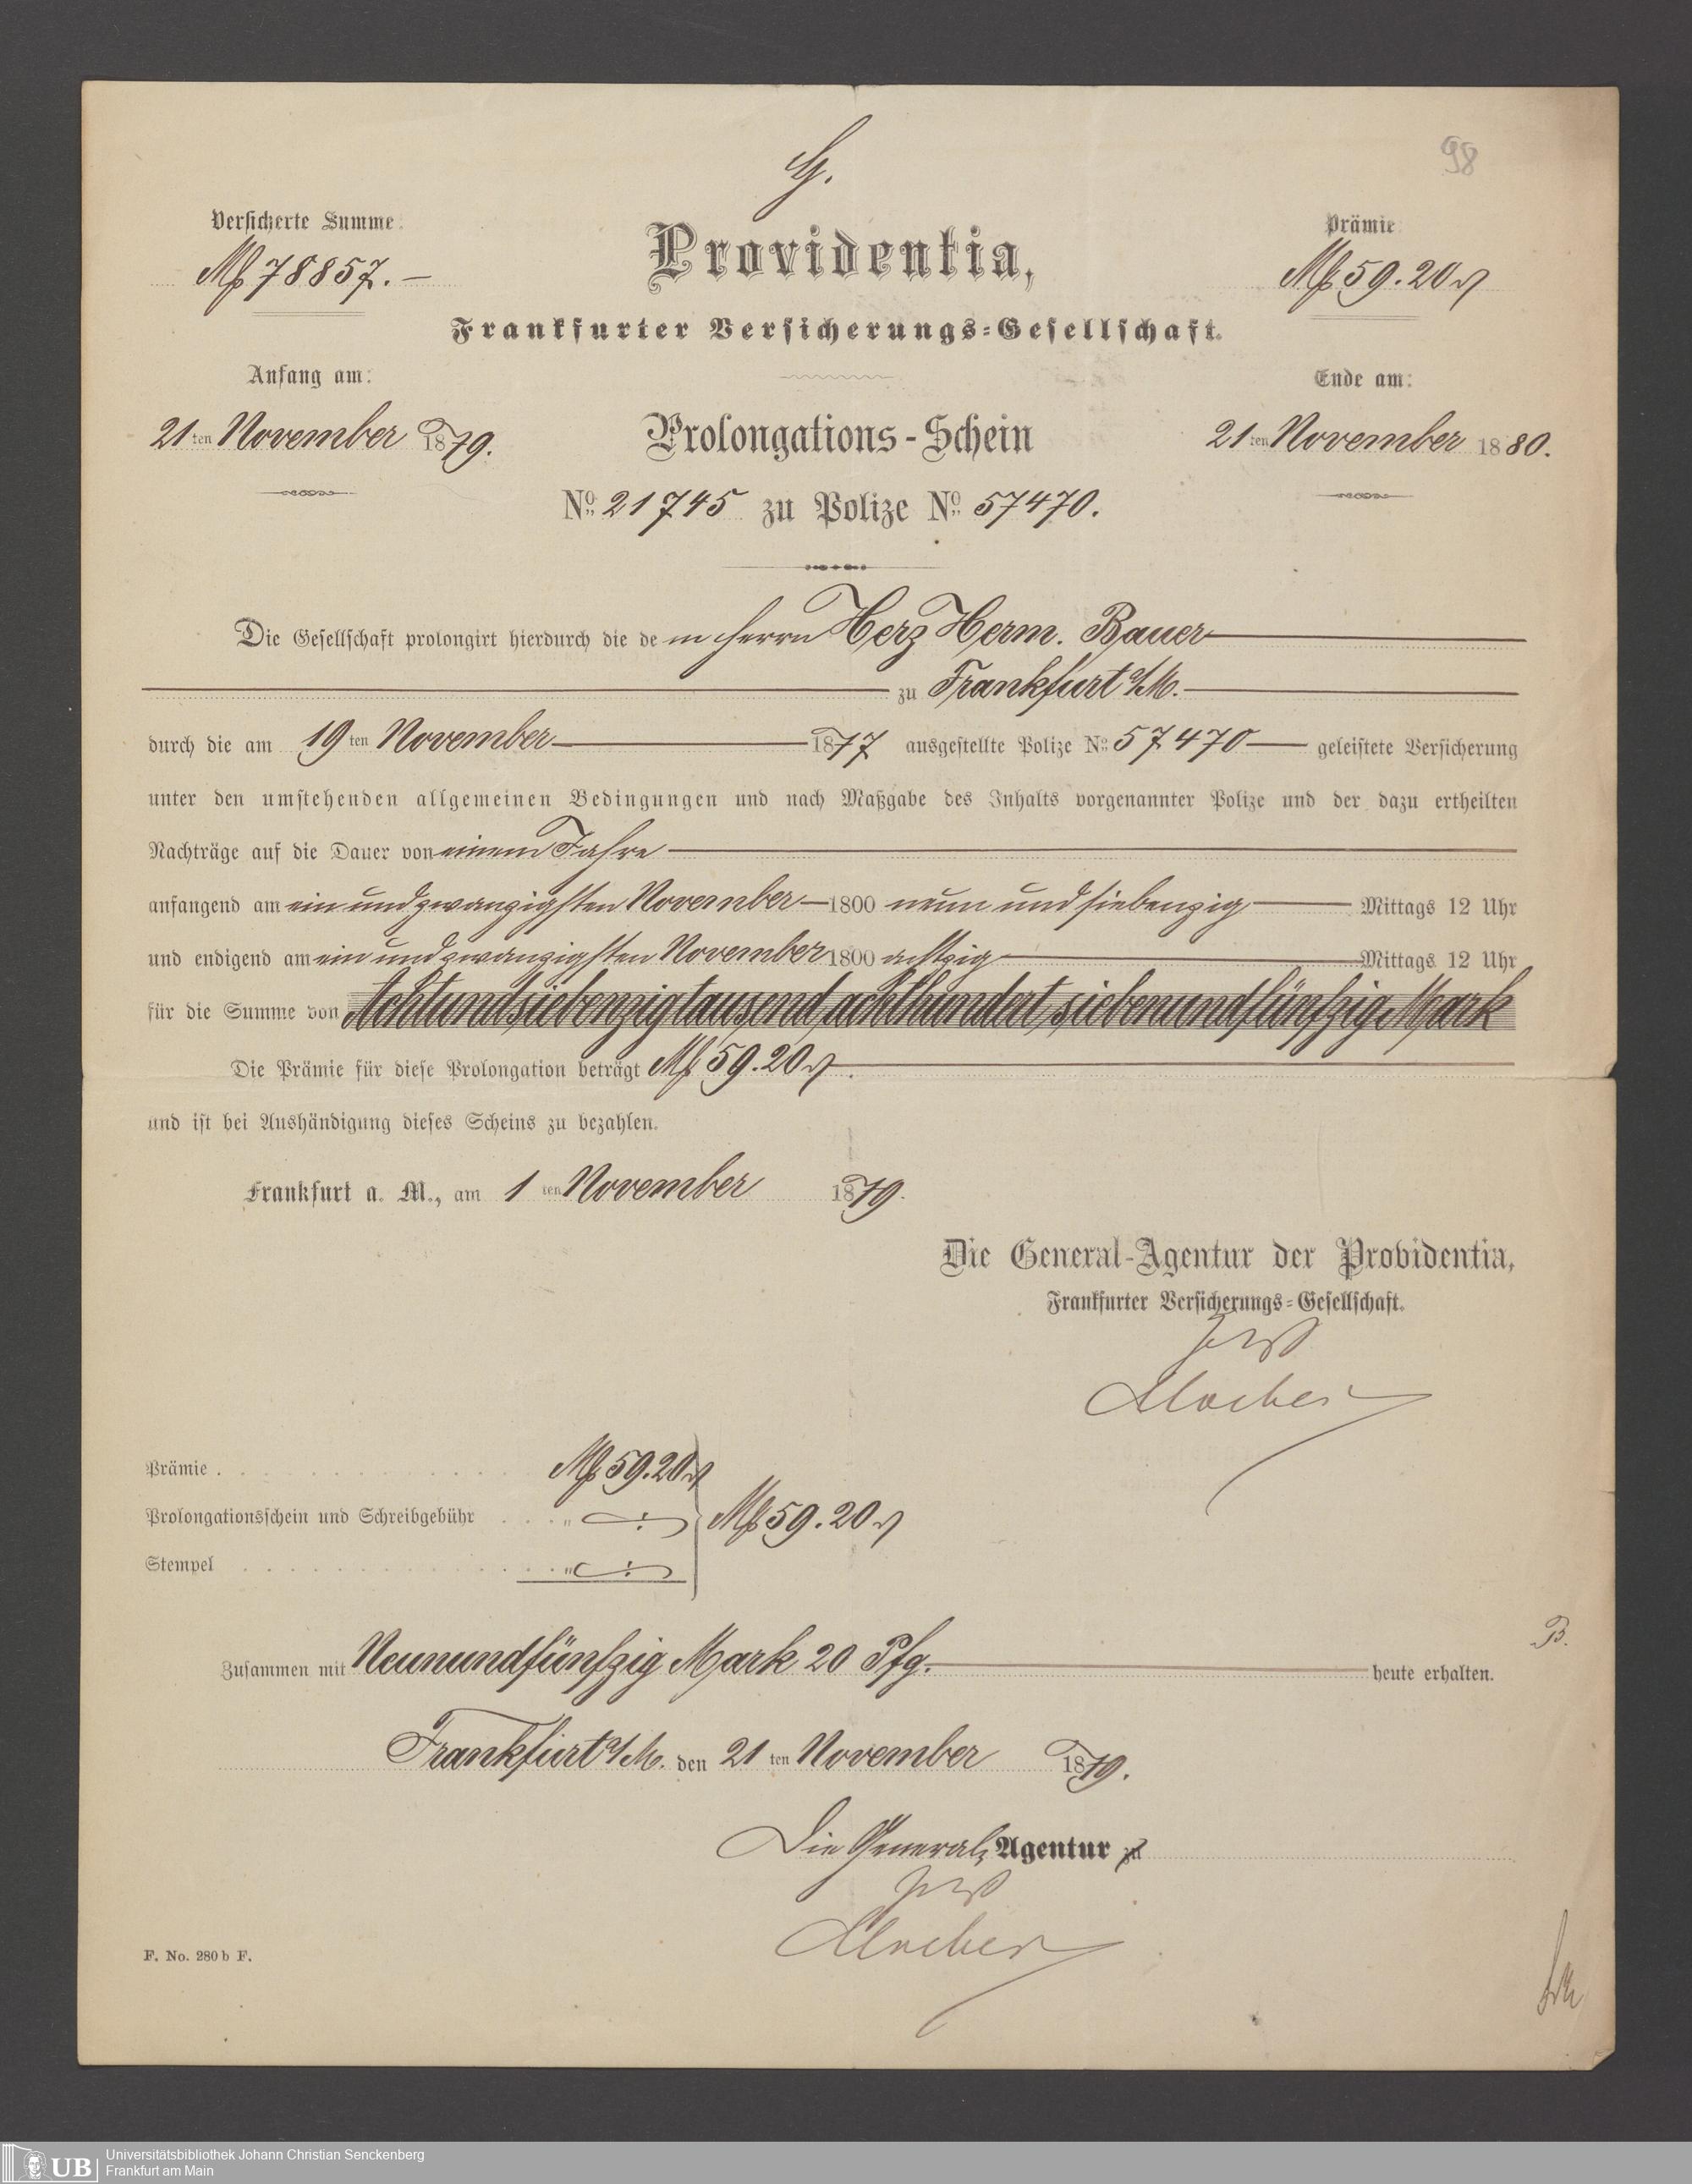 98
Versicherte Summe:
Mk 78857.–
Prämie:
Mk 59.20 ₰
Providentia,
Frankfurter Versicherungs-Gesellschaft.
Anfang am:
21ten November 1879.
Ende am:
21ten November 1880.
Prolongations-Schein
No. 21745 zu Polize No. 57470.
Die Gesellschaft prolongirt hierdurch die dem Herrn Herz Herm. Bauer
zu Frankfurt a/M.
durch die am 19ten November 1877 ausgestellte Polize No. 57470 geleistete Versicherung
unter den umstehenden allgemeinen Bedingungen und nach Maßgabe des Inhalts vorgenannter Polize und der dazu ertheilten
Nachträge auf die Dauer von einem Jahre
anfangend am ein und zwanzigsten November 1800 neun und siebenzig Mittags 12 Uhr
und endigend am ein und zwanzigsten November 1800 achtzig Mittags 12 Uhr
für die Summe von Achtundsiebenzigtausend achthundert siebenundfünfzig Mark
Die Prämie für diese Prolongation beträgt Mk 59.20 ₰.
und ist bei Aushändigung dieses Scheins zu bezahlen.
Frankfurt a. M., am 1ten November 1879.
Die General-Agentur der Providentia,
Frankfurter Versicherungs-Gesellschaft.
Prämie . . . Mk 59.20 ₰
Prolongationsschein und Schreibgebühr . . . „ –:– Mk 59.20 ₰
Stempel . . . „ –:–
B.
Zusammen mit Neunundfünfzig Mark 20 Pfg. heute erhalten.
Frankfurt a/M. den 21ten November 1879.
Die General-Agentur zu
F. No. 280 b F.
UB Universitätsbibliothek Johann Christian Senckenberg
Frankfurt am Main